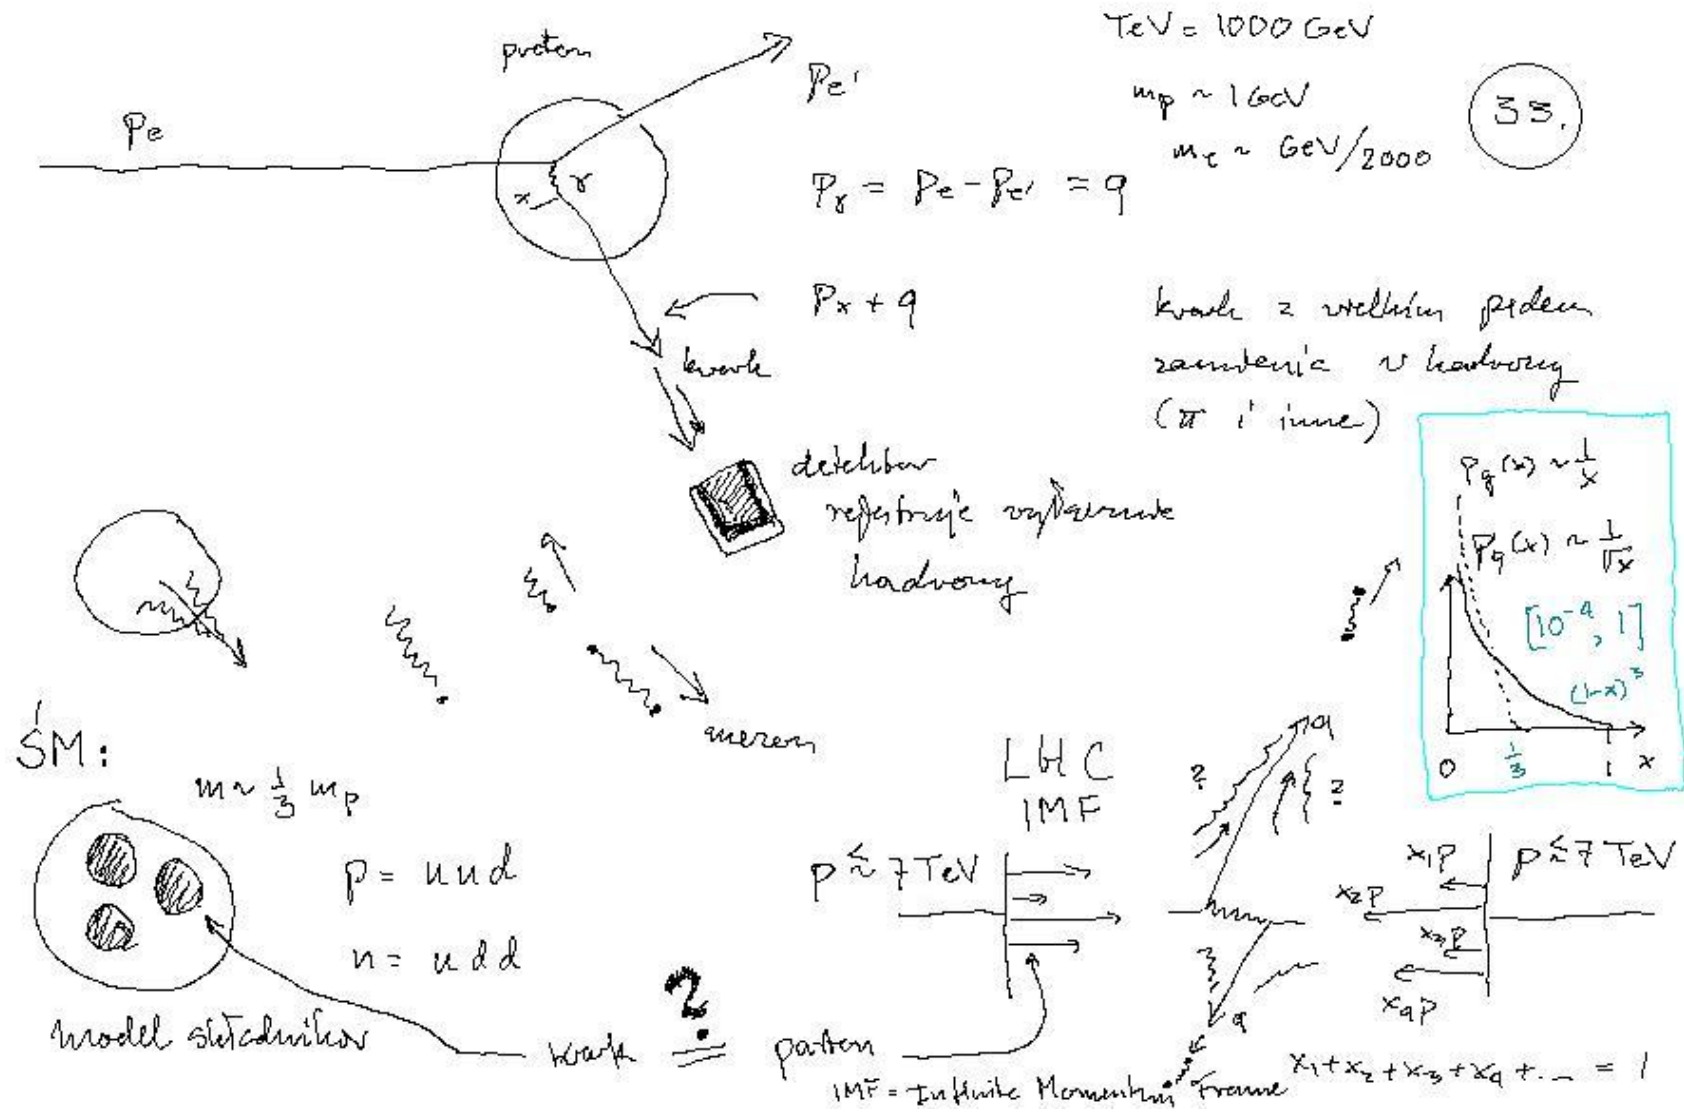 TeV = 1000 GeV
proton
Pe'
mp ~ 1 GeV
33.
Pe
me ~ GeV/2000
γ
x
Pγ = Pe - Pe' = q
Px + q
kwark
kwark z wielkim pędem
zamienia w hadrony
(π i inne)
detektor
rejestruje
hadrony
Pg(x) ~ 1/x
Pq(x) ~ 1/√x
[10⁻⁴, 1]
(1-x)³
0 1/3 1 x
mezon
ŚM:
m ~ 1/3 mp
p = uud
n = udd
model składników
kwark ? = parton
LHC
IMF
p ≲ 7 TeV
q
? ?
q
x1P
x2P
x3P
x4P
p ≲ 7 TeV
IMF = Infinite Momentum Frame
x1 + x2 + x3 + x4 + ... = 1